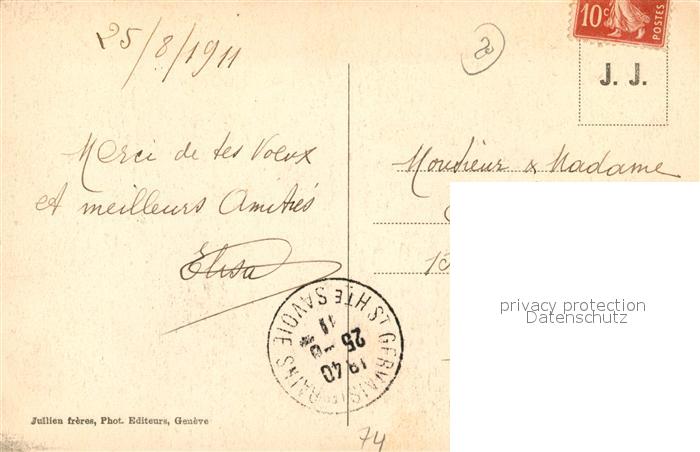 25/8/1911
10c
POSTES
J. J.
Merci de tes Voeux
et meilleurs Amitiés
Elisa
Monsieur & Madame
15
privacy protection
Datenschutz
ST GERVAIS LES BAINS HTE SAVOIE
18 40
25 - 8
11
Jullien frères, Phot. Editeurs, Genève
74